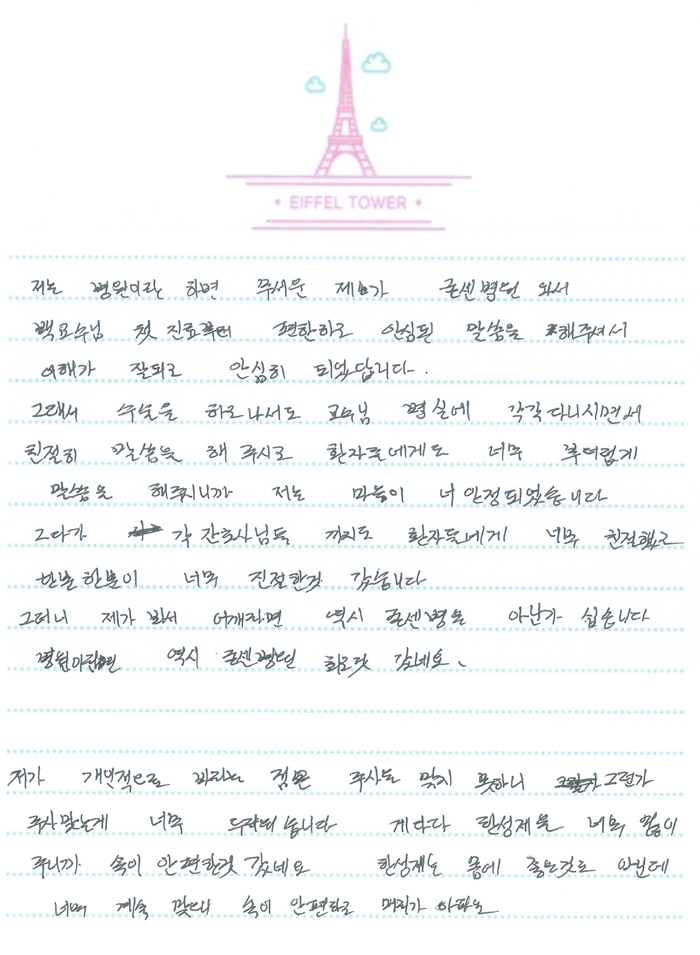 • EIFFEL TOWER •
저는 병원이란 하면 무서운 제가 굳센병원 와서
백교수님 첫 진료부터 편한하고 안심된 말씀을 해주셔서
이해가 잘되고 안심히 되었답니다.
그래서 수술을 하고나서도 교수님 병실에 각각 다니시면서
친절히 말씀을 해 주시고 환자들에게도 너무 부드럽게
말씀을 해주시니까 저는 마음이 너 안정되었습니다
그다가 각 간호사님들 까지도 환자들에게 너무 친절했고
한분 한분이 너무 친절한것 같습니다
그러니 제가 봐서 어깨라면 역시 굳센병원 아닌가 싶습니다
병원이라면 역시 굳센병원 최고잣 같네요.
저가 개인적으로 바라는 점은 주사는 맞지 못하니 그런가
주사맞는게 너무 두려워습니다 게다다 항성제를 너무 많이
주니까 속이 안편한것 같네요 항성제는 몸에 좋은것도 아닌데
너무 계속 맞으니 속이 안편하고 머리가 아파요